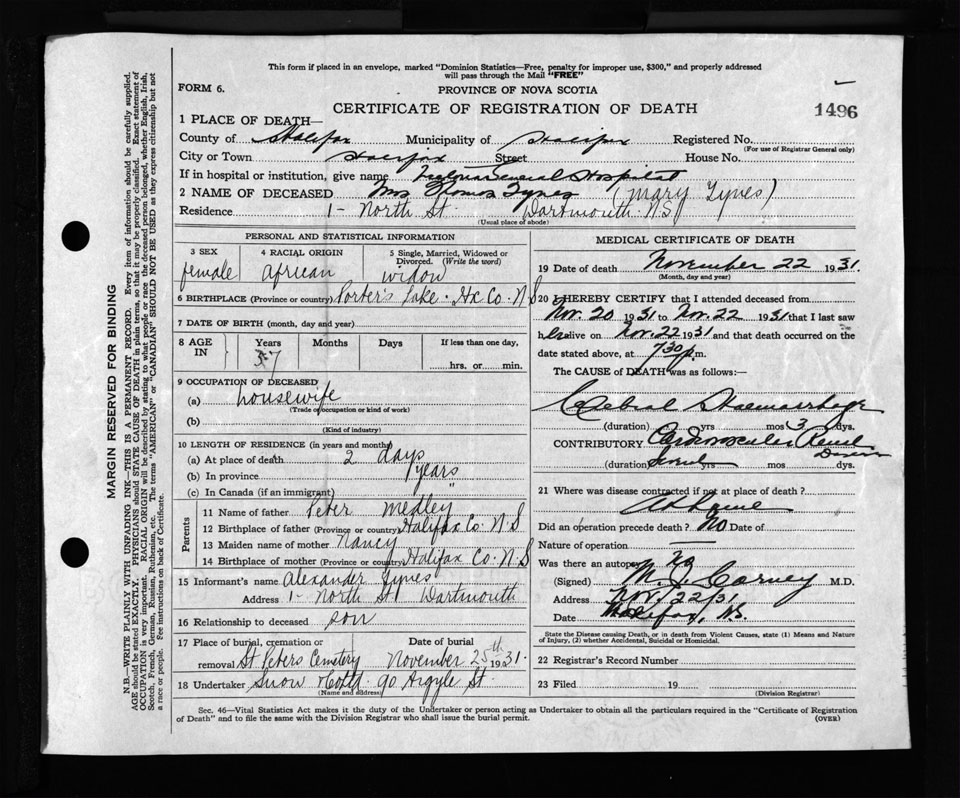 This form if placed in an envelope, marked "Dominion Statistics—Free, penalty for improper use, $300," and properly addressed
will pass through the Mail "FREE"
FORM 6. PROVINCE OF NOVA SCOTIA
CERTIFICATE OF REGISTRATION OF DEATH 1496
1 PLACE OF DEATH—
County of Halifax Municipality of Halifax Registered No.
(For use of Registrar General only)
City or Town Halifax Street House No.
If in hospital or institution, give name Victoria General Hospital
2 NAME OF DECEASED Mrs Thomas Tynes (Mary Tynes)
Residence 1 - North St. Dartmouth N.S.
(Usual place of abode)
PERSONAL AND STATISTICAL INFORMATION
3 SEX 4 RACIAL ORIGIN 5 Single, Married, Widowed or
Divorced. (Write the word)
female african widow
6 BIRTHPLACE (Province or country) Porter's Lake. Hx Co. N S
7 DATE OF BIRTH (month, day and year)
8 AGE IN Years Months Days If less than one day,
57 hrs. or min.
9 OCCUPATION OF DECEASED
(a) housewife
(Trade or occupation or kind of work)
(b)
(Kind of industry)
10 LENGTH OF RESIDENCE (in years and months)
(a) At place of death 2 days
(b) In province years
(c) In Canada (if an immigrant) "
Parents
11 Name of father Peter Medley
12 Birthplace of father (Province or country) Halifax Co. N.S
13 Maiden name of mother Nancy
14 Birthplace of mother (Province or country) Halifax Co. N.S
15 Informant's name Alexander Tynes
Address 1 - North St Dartmouth
16 Relationship to deceased son
17 Place of burial, cremation or Date of burial
removal St Peters Cemetery November 25th 1931.
18 Undertaker Snow & Co Ltd. 90 Argyle St.
(Name and address)
MEDICAL CERTIFICATE OF DEATH
19 Date of death November 22 1931.
(Month, day and year)
20 I HEREBY CERTIFY that I attended deceased from
Nov. 20 1931 to Nov. 22 1931 that I last saw
her alive on Nov. 22 1931 and that death occurred on the
date stated above, at 7.30 p.m.
The CAUSE of DEATH was as follows:—
Cerebral Haemorrhage
(duration) yrs mos 3 dys.
CONTRIBUTORY Cardiovascular Renal Disease
(duration) yrs mos dys.
21 Where was disease contracted if not at place of death?
At home
Did an operation precede death? No Date of
Nature of operation —
Was there an autopsy? No
(Signed) M. J. Carney M.D.
Address Nov/22/31
Date Halifax, N.S.
State the Disease causing Death, or in death from Violent Causes, state (1) Means and Nature
of Injury, (2) whether Accidental, Suicidal or Homicidal.
22 Registrar's Record Number
23 Filed 19
(Division Registrar)
Sec. 46—Vital Statistics Act makes it the duty of the Undertaker or person acting as Undertaker to obtain all the particulars required in the "Certificate of Registration
of Death" and to file the same with the Division Registrar who shall issue the burial permit. (OVER)
MARGIN RESERVED FOR BINDING
N.B.—WRITE PLAINLY WITH UNFADING INK—THIS IS A PERMANENT RECORD. Every item of information should be carefully supplied.
AGE should be stated EXACTLY. PHYSICIANS should STATE CAUSE OF DEATH in plain terms, so that it may be properly classified. Exact statement of
OCCUPATION is very important. RACIAL ORIGIN will be described by stating to what people or race the deceased person belonged, whether English, Irish,
Scotch, French, German, Russian, Ruthenian, etc. The terms "AMERICAN" or "CANADIAN" SHOULD NOT BE USED as they express citizenship but not
a race or people. See instructions on back of Certificate.